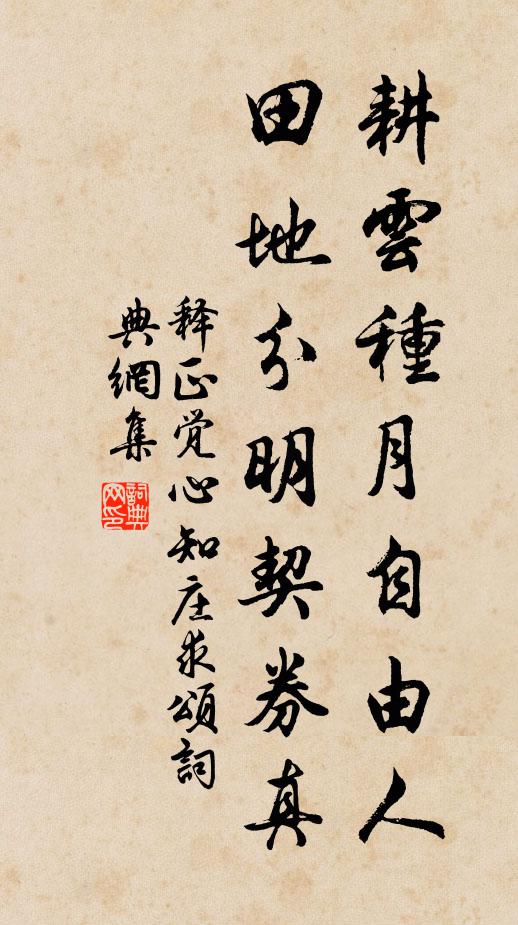 耕雲種月自由人
田地分明契券真
释正覚心知庄求頌詞
典網集
詞典
网印